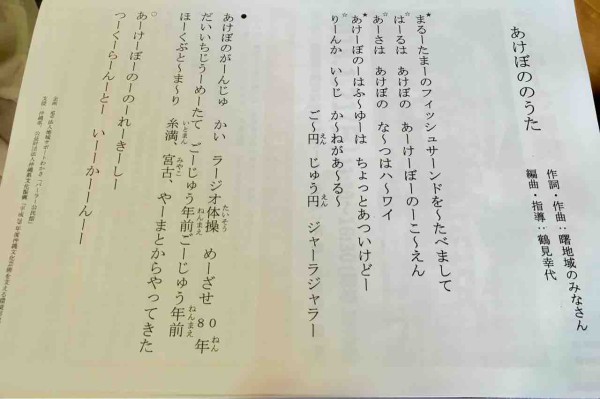 あけぼののうた
作詞・作曲：曙地域のみなさん
編曲・指導：鶴見幸代
★まるーたまーのフィッシュサーンドを～たべまして
☆はーるは　あけぼの　あーけーぼーのーこ～えん
★あーさは　あけぼの　な～つはハ～ワイ
★あけーぼのーはふ～ゆーは　ちょっとあついけどー
☆りーんか　い～じ　か～ねがあ～る～
ご～円　じゅう円　ジャーラジャラー
えん　えん
●あけぼのがーんじゅ　かい　ラージオ体操　めーざせ　８０年
たいそう　ねん
だいいちじうーめーたて　ごーじゅう年前ごーじゅう年前
ねんまえ　ねんまえ
ほーくぶと～ま～り　糸満、宮古、やーまとからやってきた
いとまん　みやこ
○あーけーぼーのーのーれーきーしー
つーくーらーんーとー　いーーかーーんーー